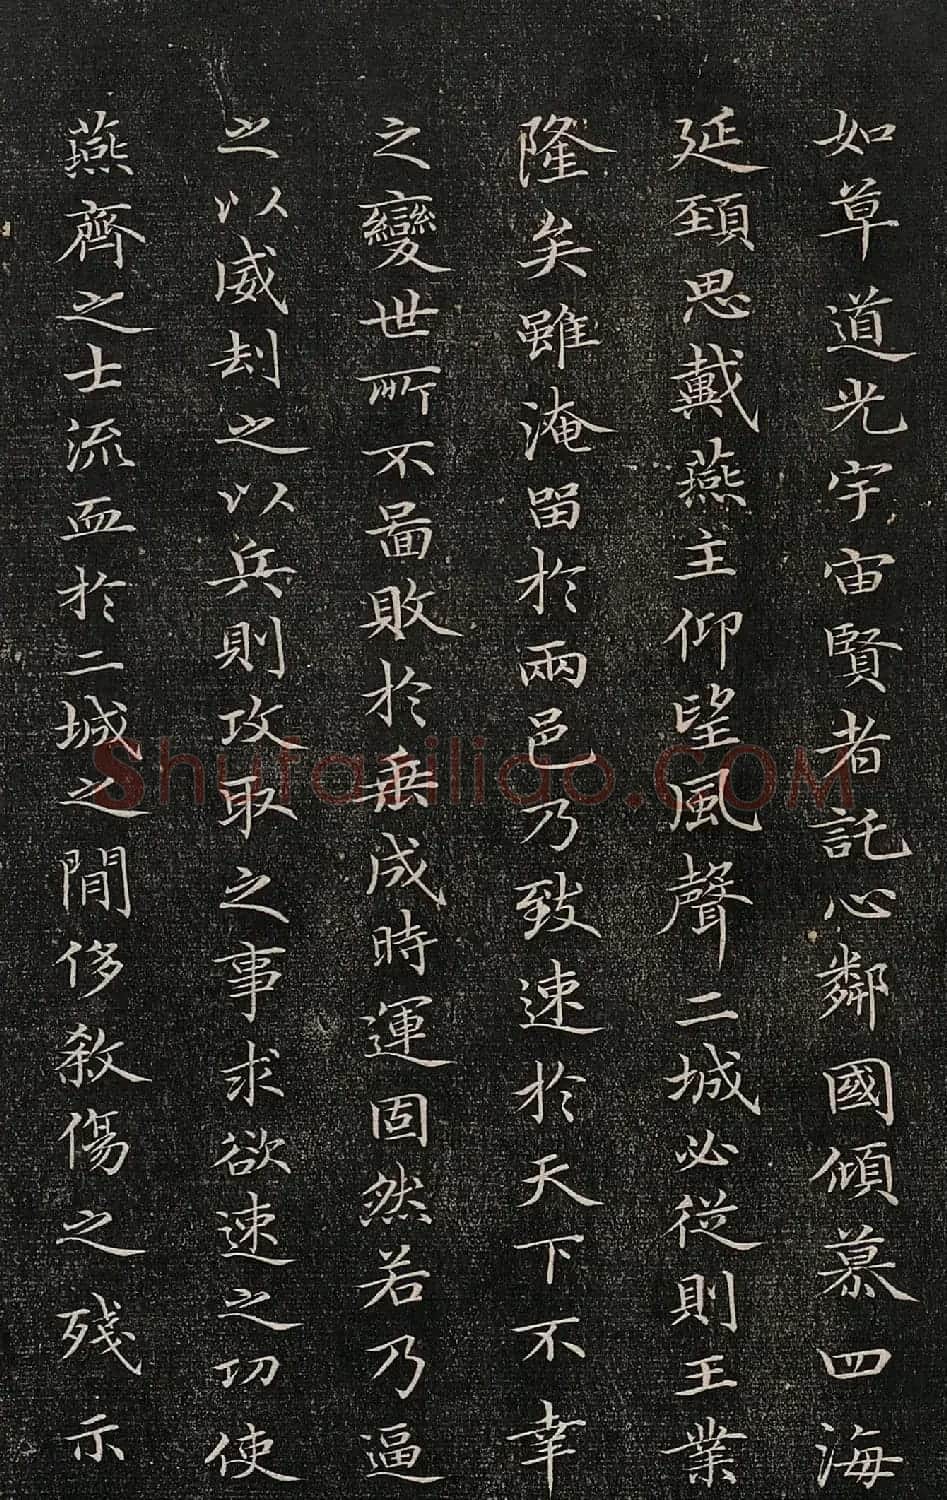 如草道光宇宙賢者託心鄰國傾慕四海
延頚思戴燕主仰望風聲二城必從則王業
隆矣雖淹留於兩邑乃致速於天下不幸
之變世所不啚敗於垂成時運固然若乃逼
之以威刦之以兵則攻取之事求欲速之功使
燕齊之士流血於二城之閒侈敎傷之殘示
Shufaziliao.COM